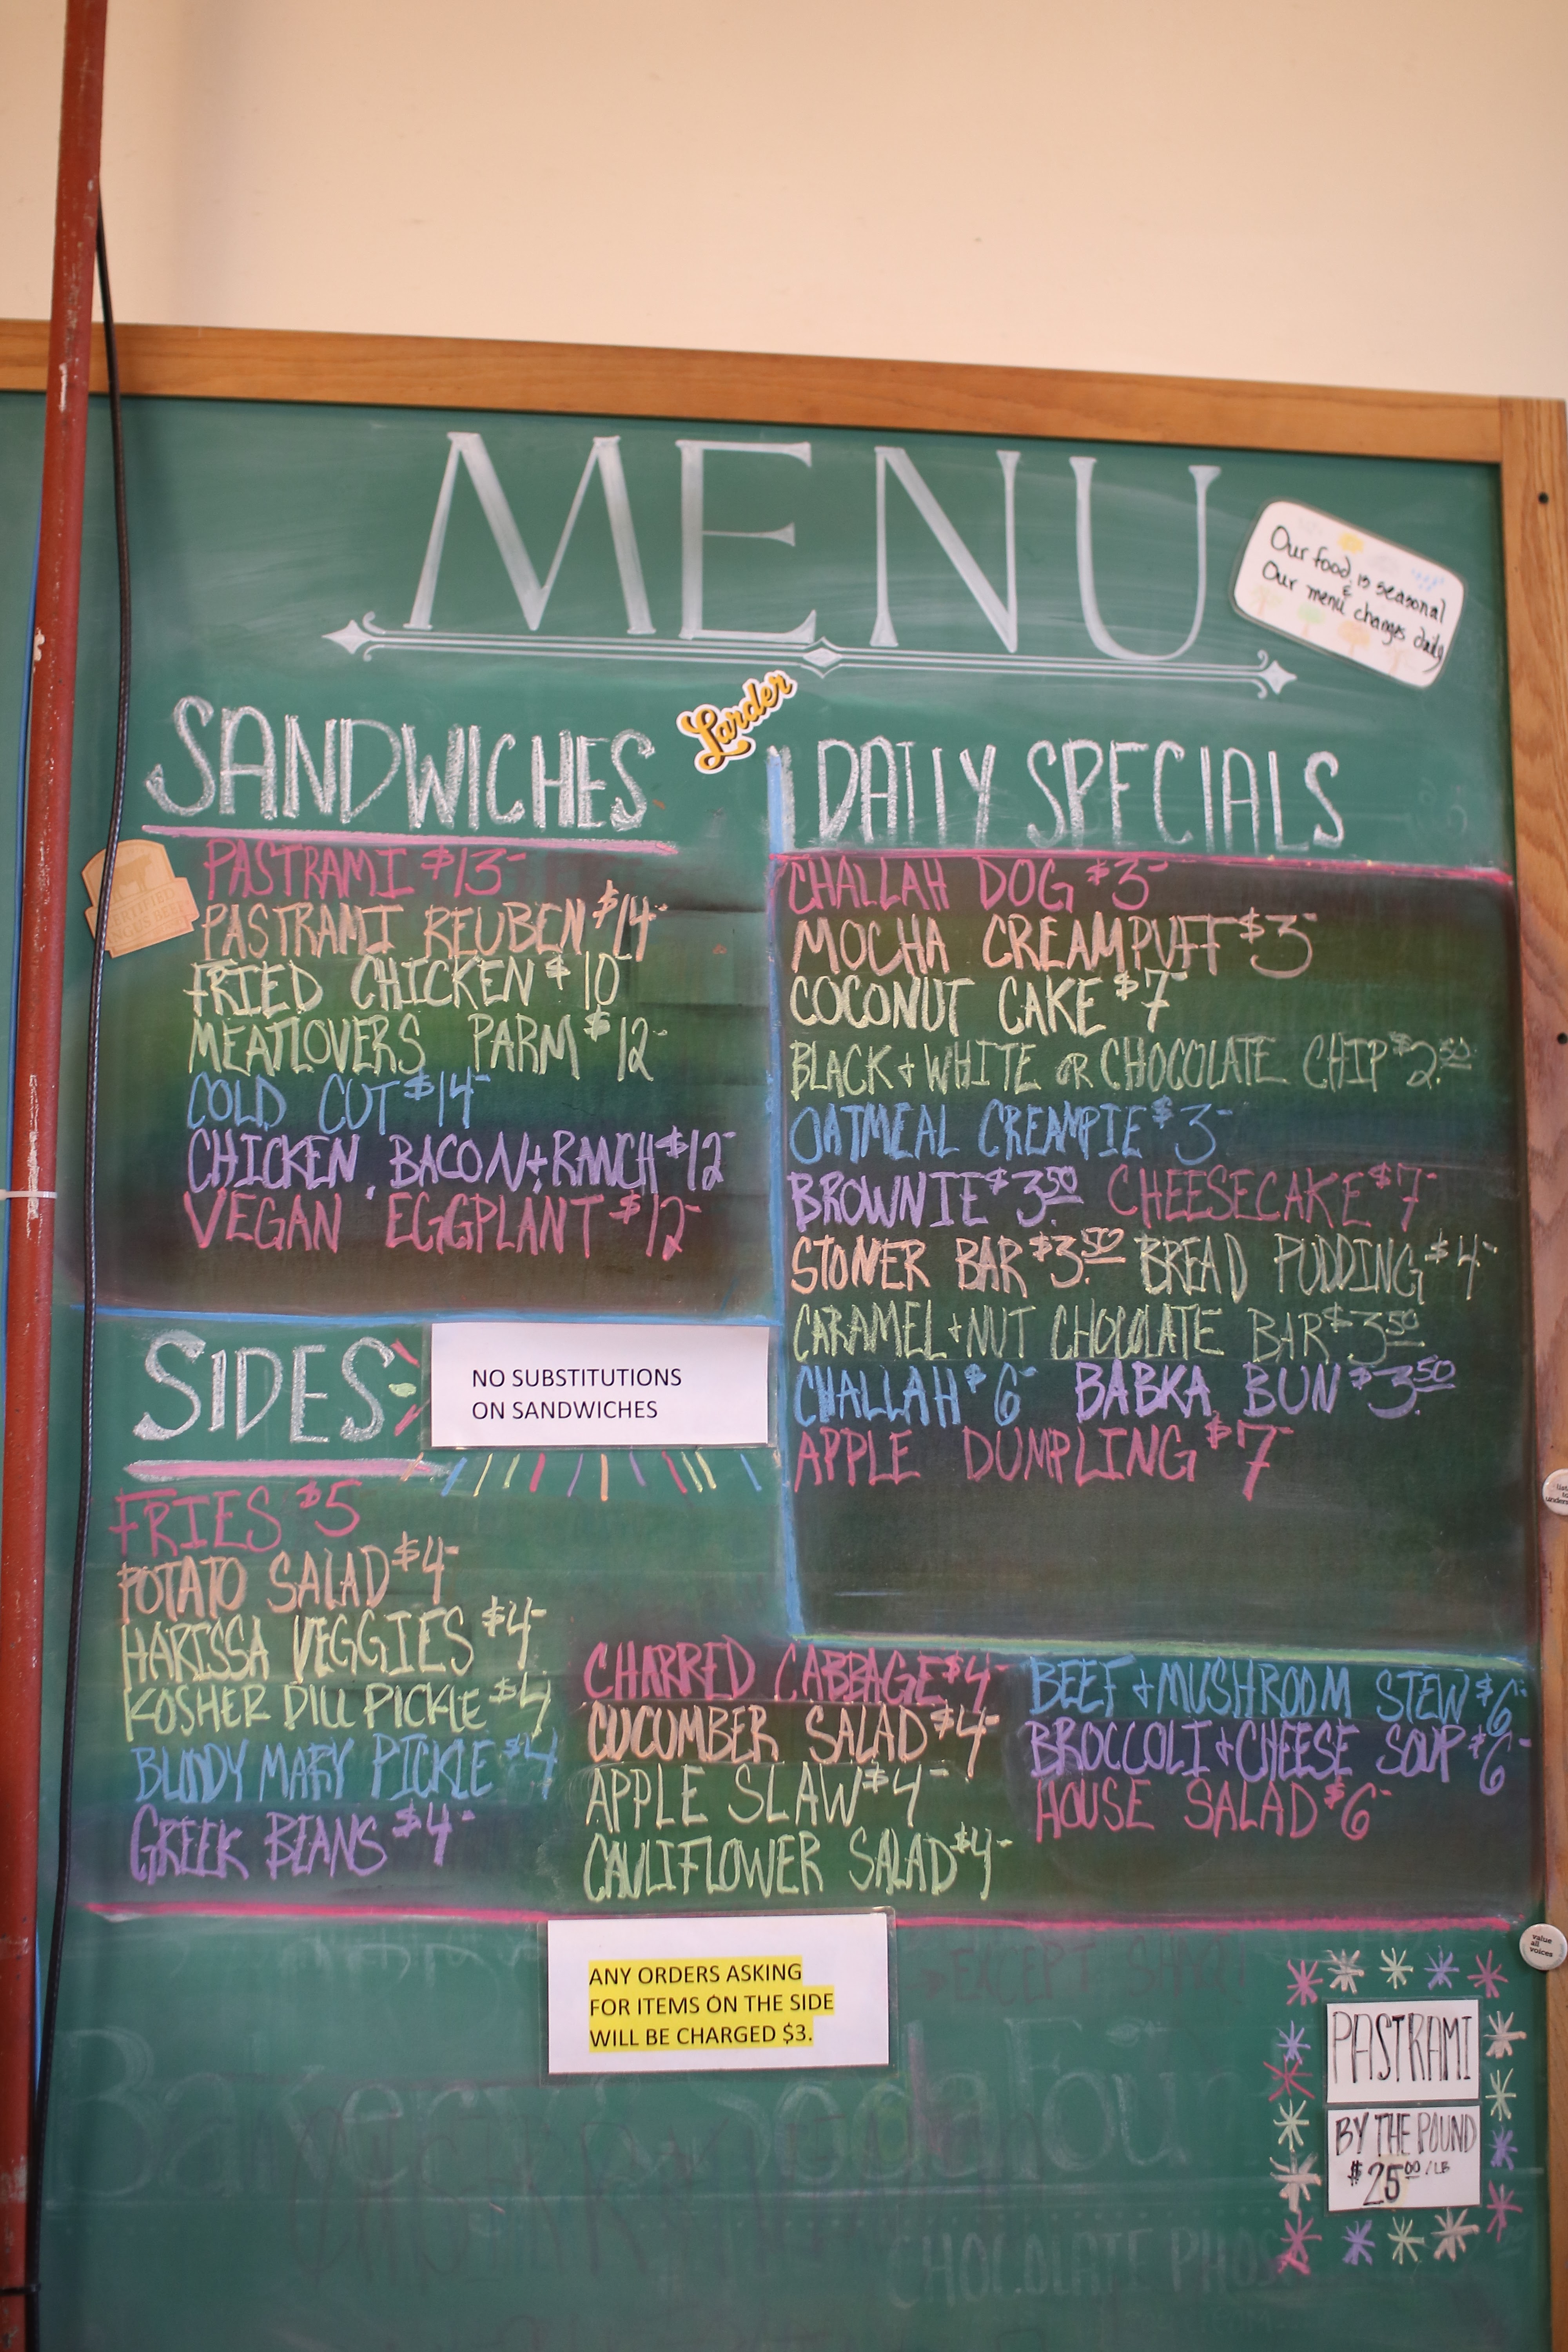 MENU
Our food is seasonal
&
Our menu changes daily
Larder
SANDWICHES
PASTRAMI $13-
PASTRAMI REUBEN $14-
FRIED CHICKEN $10-
MEATLOVERS PARM $12-
COLD CUT $14-
CHICKEN, BACON + RANCH $12-
VEGAN EGGPLANT $12-
DAILY SPECIALS
CHALLAH DOG $3-
MOCHA CREAMPUFF $3-
COCONUT CAKE $7-
BLACK + WHITE OR CHOCOLATE CHIP $2.50
OATMEAL CREAMPIE $3-
BROWNIE $3.50 CHEESECAKE $7-
STONER BAR $3.50 BREAD PUDDING $4-
CARAMEL + NUT CHOCOLATE BAR $3.50
CHALLAH $6- BABKA BUN $3.50
APPLE DUMPLING $7-
SIDES
NO SUBSTITUTIONS
ON SANDWICHES
FRIES $5
POTATO SALAD $4-
HARISSA VEGGIES $4-
KOSHER DILL PICKLE $4
BLOODY MARY PICKLE $4
GREEK BEANS $4-
CHARRED CABBAGE $4-
CUCUMBER SALAD $4-
APPLE SLAW $4-
CAULIFLOWER SALAD $4-
BEEF + MUSHROOM STEW $6-
BROCCOLI + CHEESE SOUP $6-
HOUSE SALAD $6-
ANY ORDERS ASKING
FOR ITEMS ON THE SIDE
WILL BE CHARGED $3.
value
all
voices
PASTRAMI
BY THE POUND
$25.00/LB
EXCEPT
Bakery & Soda
CHOCOLATE